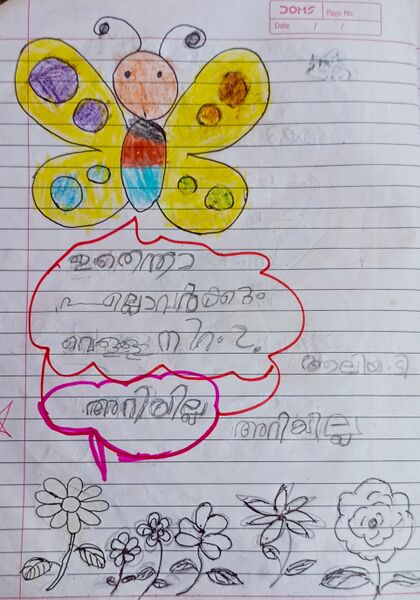 DOMS Page No.
Date / /
ഇതെന്താ
എല്ലാവർക്കും
വെള്ള നിറം ?
അറിയില്ല
അറിയില്ല